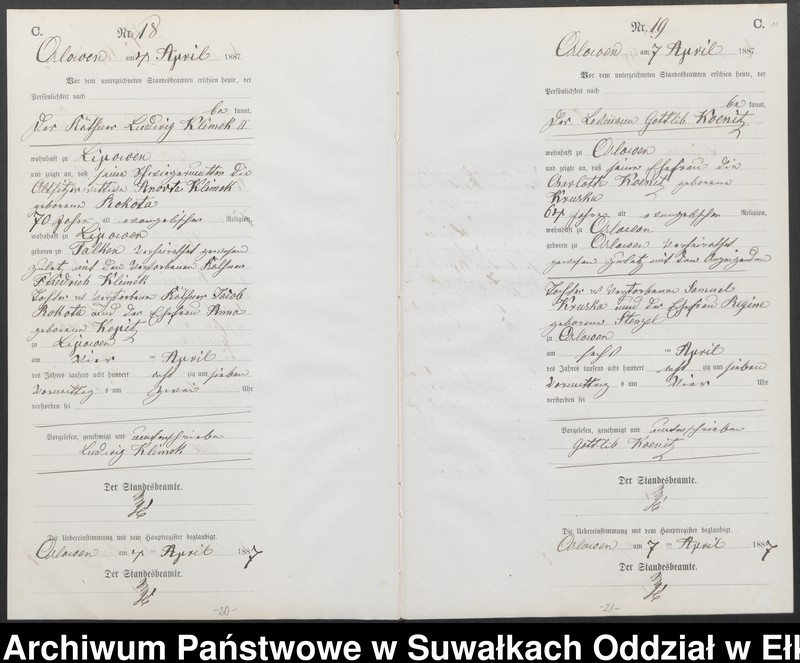 C.
Nr. 18
Orlowen am 4 April 1887.
Vor dem unterzeichneten Standesbeamten erschien heute, der
Persönlichkeit nach
be kannt,
Der Käthner Ludwig Klimek II
wohnhaft zu Lipowen
und zeigte an, daß seine Schwiegermutter die
Altsitzerwittwe Anorte Klimek
geborene Rokota
70 Jahre alt evangelischer Religion,
wohnhaft zu Lipowen
geboren zu Talken verheirathet gewesen
zuletzt mit dem verstorbenen Käthner
Friedrich Klimek
Tochter der verstorbenen Käthner Jacob
Rokota und der Ehefrau Anna
geborene Kopitz
zu Lipowen
am vier ten April
des Jahres tausend acht hundert acht zig und sieben
Vormittag s um zwei Uhr
verstorben sei
Vorgelesen, genehmigt und unterschrieben
Ludwig Klimek
Der Standesbeamte.
Die Uebereinstimmung mit dem Hauptregister beglaubigt.
Orlowen am 4 ten April 1887
Der Standesbeamte.
-20-
Nr. 19
C.
Orlowen am 7 April 1887.
Vor dem unterzeichneten Standesbeamten erschien heute, der
Persönlichkeit nach
be kannt,
Der Losmann Gottlieb Koenitz
wohnhaft zu Orlowen
und zeigte an, daß seine Ehefrau die
Charlotte Koenitz geborene
Kruska
64 Jahre alt evangelischer Religion,
wohnhaft zu Orlowen
geboren zu Orlowen verheirathet
gewesen zuletzt mit dem Anzeigenden
Tochter der verstorbenen Samuel
Kruska und der Ehefrau Regine
geborene Stenzel
zu Orlowen
am sechs ten April
des Jahres tausend acht hundert acht zig und sieben
Vormittag s um vier Uhr
verstorben sei
Vorgelesen, genehmigt und unterschrieben
Gottlieb Koenitz
Der Standesbeamte.
Die Uebereinstimmung mit dem Hauptregister beglaubigt.
Orlowen am 7 ten April 1887
Der Standesbeamte.
-21-
Archiwum Państwowe w Suwałkach Oddział w Eł